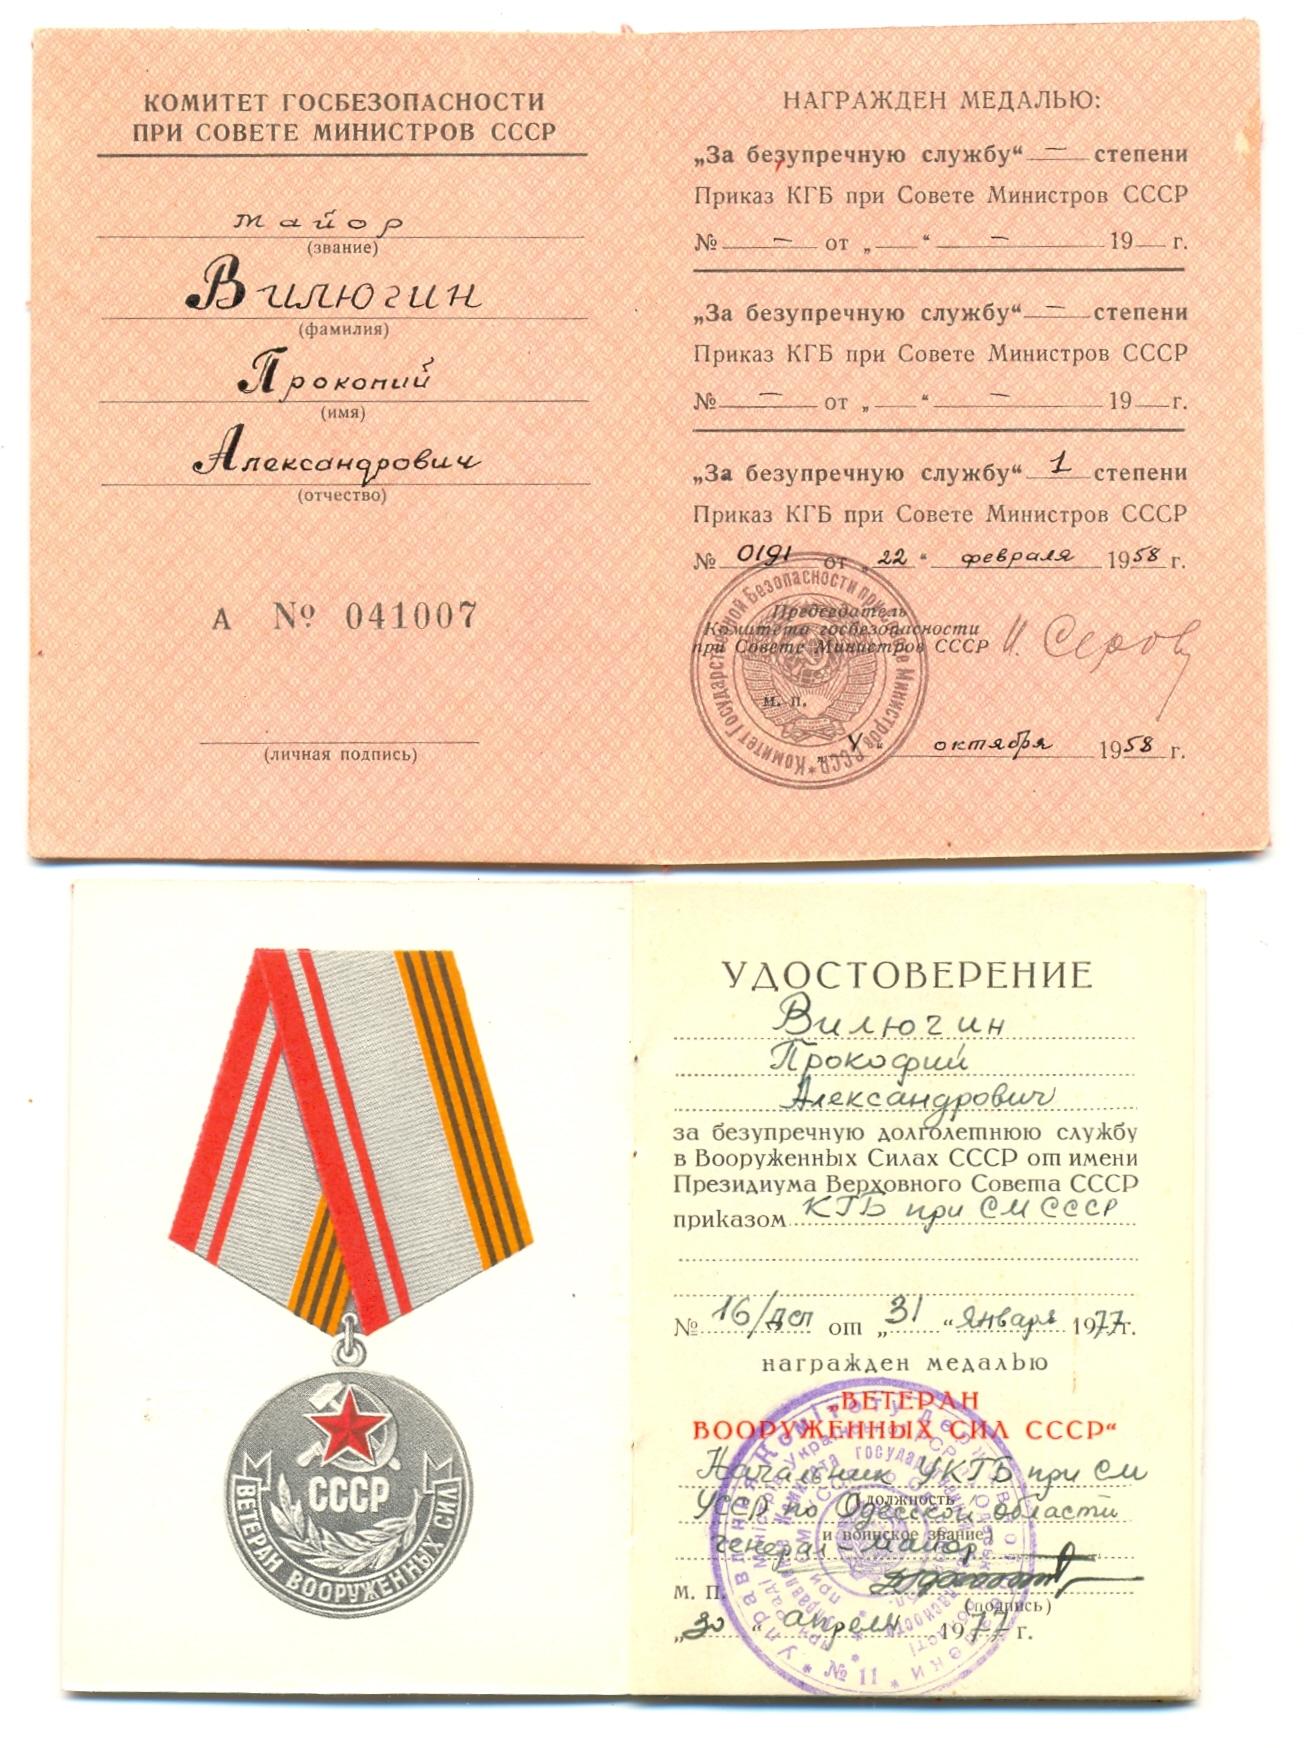 КОМИТЕТ ГОСБЕЗОПАСНОСТИ
ПРИ СОВЕТЕ МИНИСТРОВ СССР
майор
(звание)
Вилюгин
(фамилия)
Прокопий
(имя)
Александрович
(отчество)
А № 041007
(личная подпись)
НАГРАЖДЕН МЕДАЛЬЮ:
„За безупречную службу“ — степени
Приказ КГБ при Совете Министров СССР
№ — от „ “ — 19 г.
„За безупречную службу“ — степени
Приказ КГБ при Совете Министров СССР
№ — от „ “ — 19 г.
„За безупречную службу“ 1 степени
Приказ КГБ при Совете Министров СССР
№ 0191 от „22“ февраля 1958 г.
Председатель
Комитета госбезопасности
при Совете Министров СССР И. Серов
м. п.
октября 1958 г.
Комитет Государственной Безопасности при Совете Министров СССР
СССР
ВЕТЕРАН ВООРУЖЕННЫХ СИЛ
УДОСТОВЕРЕНИЕ
Вилючин
Прокофий
Александрович
за безупречную долголетнюю службу
в Вооруженных Силах СССР от имени
Президиума Верховного Совета СССР
приказом КГБ при СМ СССР
№ 16/дсп от „31“ января 1977г.
награжден медалью
„ВЕТЕРАН
ВООРУЖЕННЫХ СИЛ СССР“
Начальник УКГБ при СМ
УССР по Одесской области
(должность
и воинское звание)
генерал-майор
М. П.
(подпись)
„30“ апреля 1977 г.
№ 11